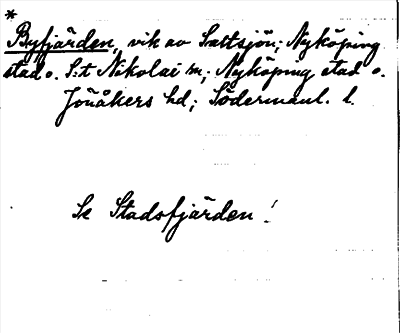 *
Byfjärden, vik av Saltsjön; Nyköping
stad o. S:t Nikolai sn; Nyköping stad o.
Jönåkers hd; Södermanl. l.
Se Stadsfjärden!